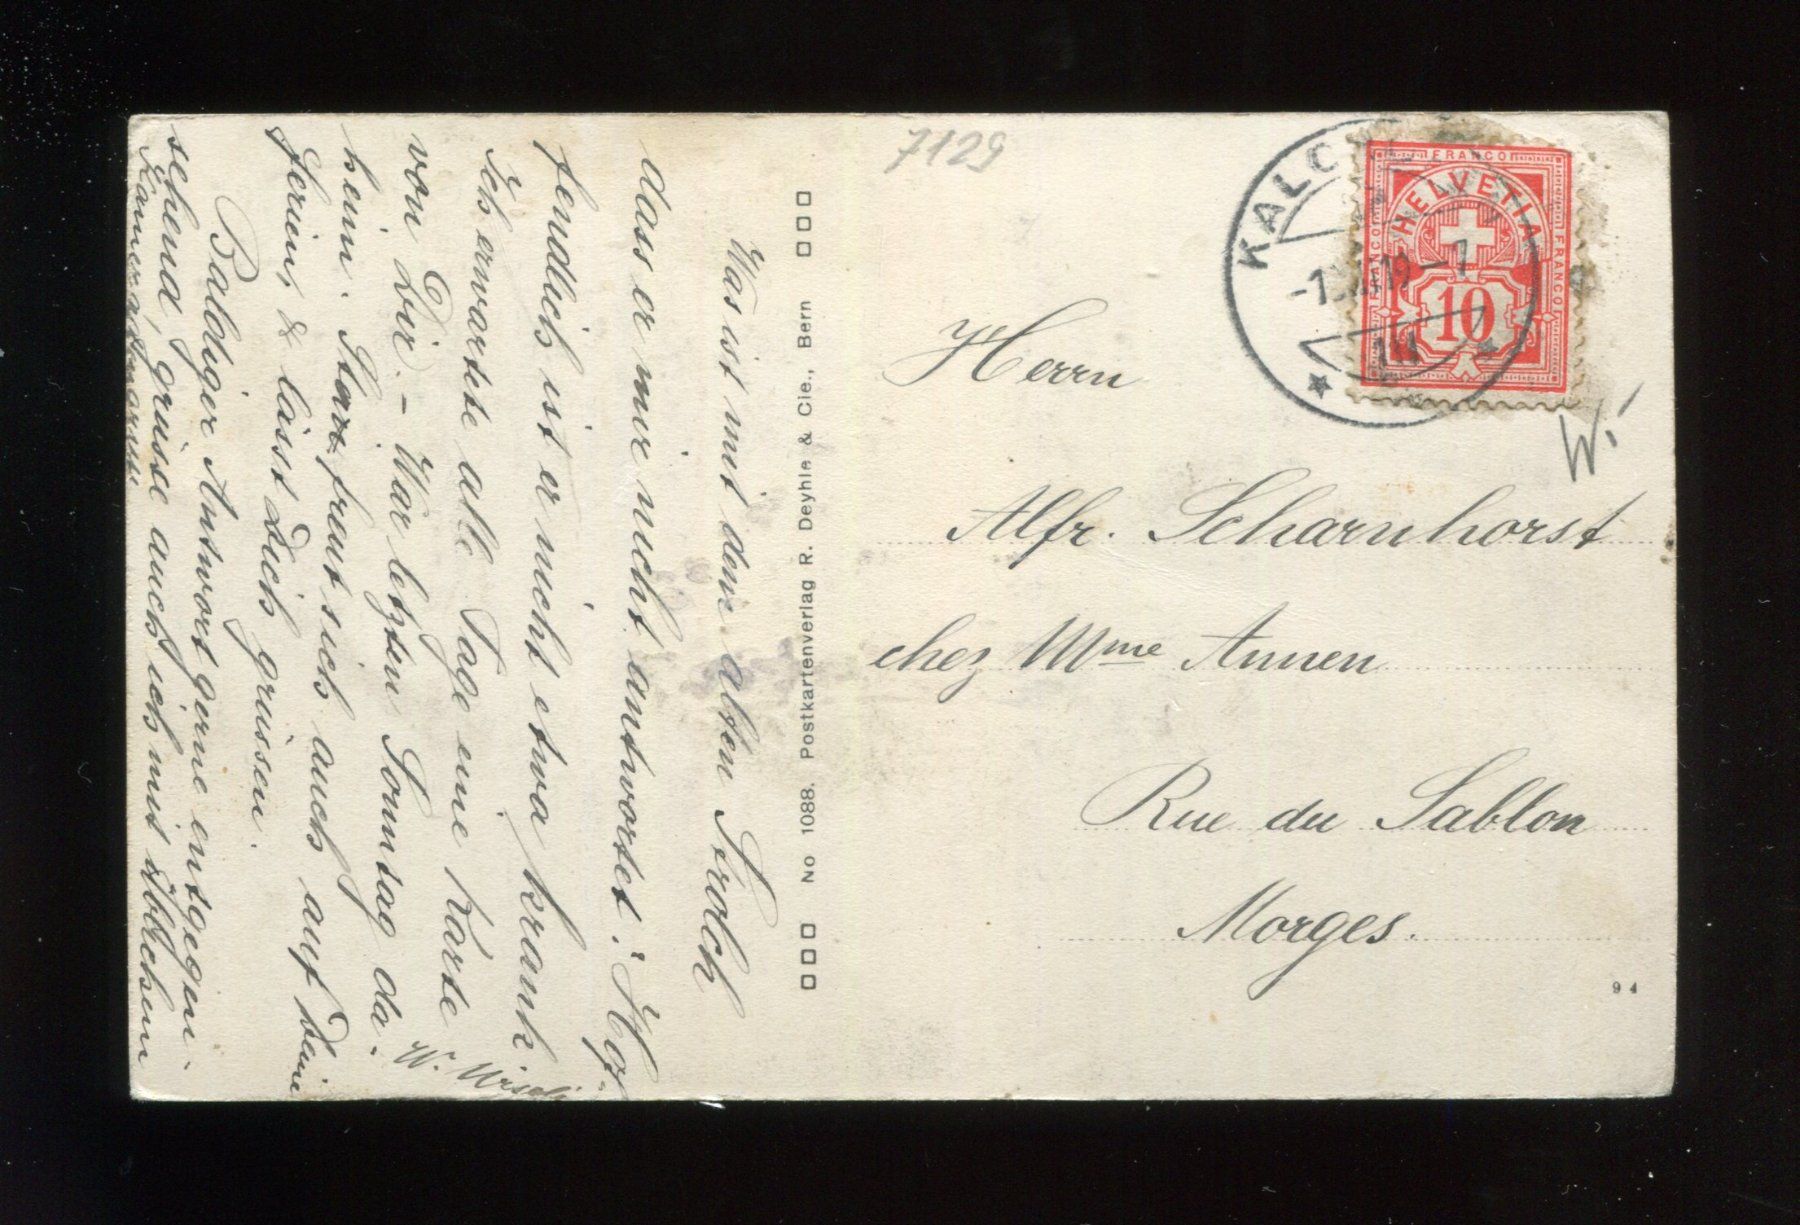 7129
KALC
-1. 19 -7
FRANCO
FRANCO
FRANCO
HELVETIA
10
W.
Herrn
Alfr. Scharnhorst
chez Mme Annen
Rue du Sablon
Morges.
94
No 1088. Postkartenverlag R. Deyhle & Cie., Bern
Was ist mit dem alten Strolch
dass er mir nicht antwortet? Hof-
fendlich ist er nicht etwa krank
Ich erwartete alle Tage eine Karte
von Dir. – War letzten Sonntag da-
heim. freut sich auch auf Deine
Ferien, & lässt Dich grüssen.
Baldiger Antwort gerne entgegen-
sehend, grüsse auch ich mit üblichem
W. Wiseli